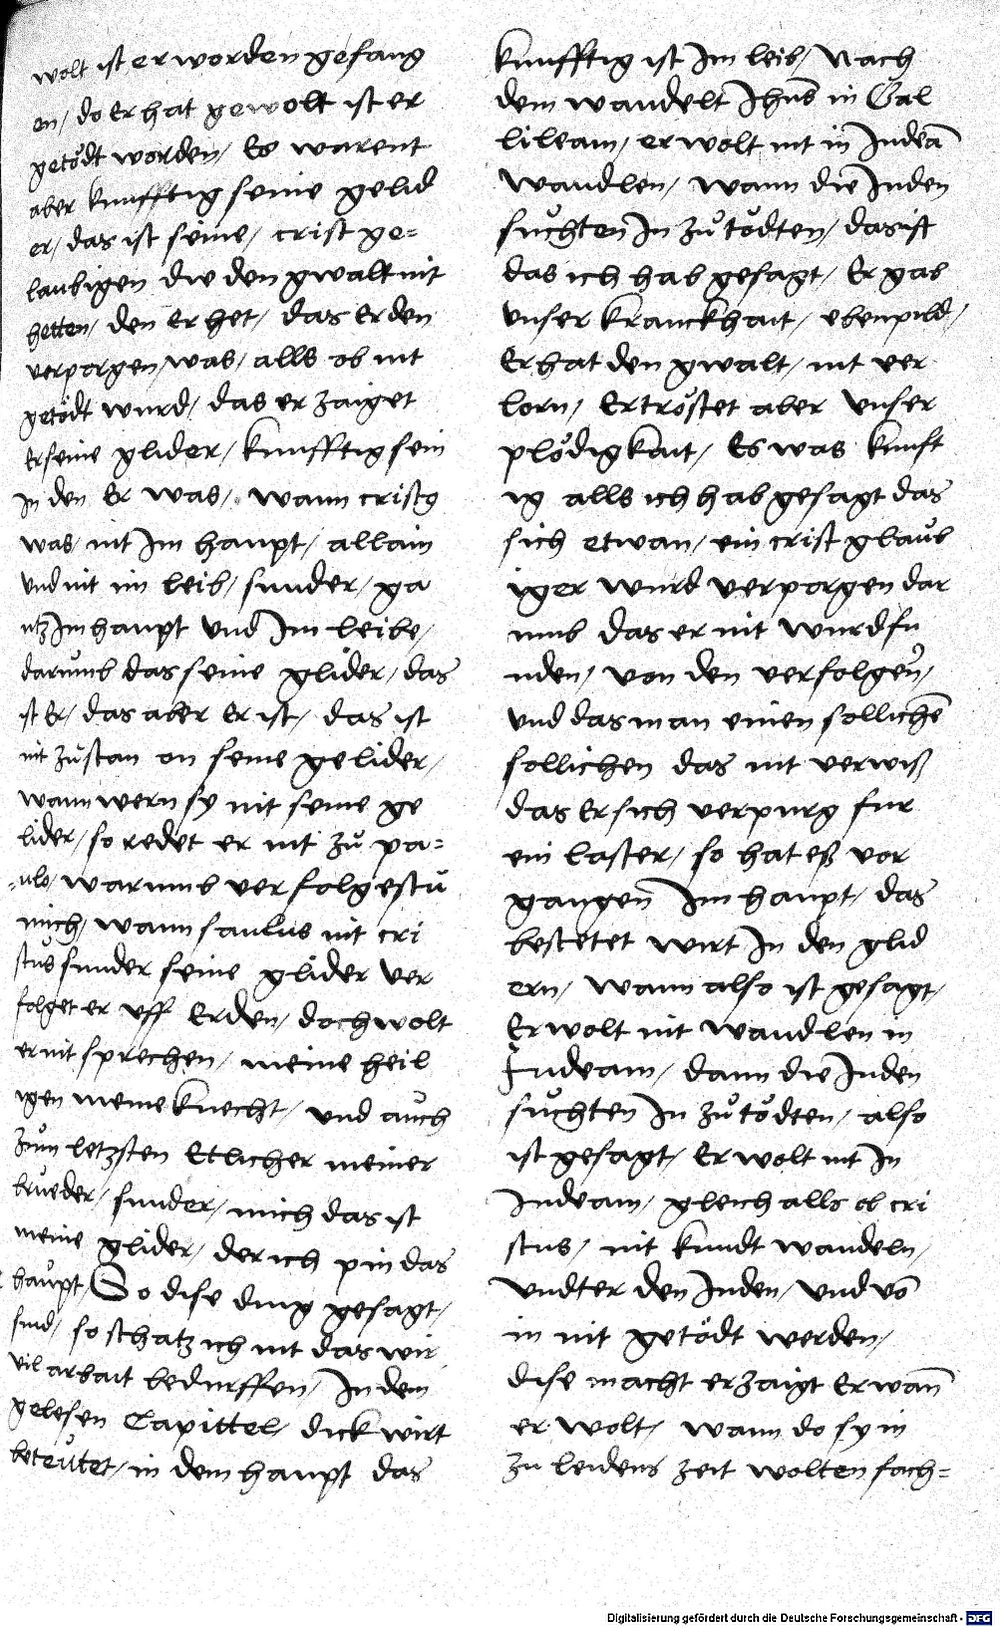 wolt ist er worden gefang
en/ do Er hat gewolt ist er
getödt worden/ Es warent
aber kunfftig seine gelid
er/ das ist seine/ crist ge=
laubigen die den gwalt nit
hetten/ den Er het/ das Er den
verporgen was/ alls ob nit
getödt wurd/ das er zaiget
Er seine glider/ kunfftig sein
In den Er was/ wann cristus
was/ nit Im haupt/ allain
vnd nit im leib/ sunder/ ga
ntz Im haupt vnd Im leibe/
darumb das seine glider/ das
ist Er/ das aber Er ist/ das ist
nit zůstan on seine gelider/
wann wern sy nit seine ge
lider/ so redet er nit zů pa=
ulo/ warumb verfolgestu
mich/ wann saulus nit cri
stus sunder seine glider ver
folget er vff Erden/ doch wolt
er nit sprechen/ meine heil
igen meine knecht/ vnd auch
zum letzsten Etlicher meiner
brueder/ sunder/ mich das ist
meine glider/ der ich pin das
haupt/ So dise ding gesagt/
sind/ so schatz ich nit das wir
vil arbait bedurffen/ In dem
gelesen Capittel/ dick wirt
beteutet/ in dem haupt das
kunfftig ist Im leib/ Nach
dem wandelt Jhus in Gal
lileam/ er wolt nit in Judeā
wandlen/ wann die Juden
sůchten In zů tödten/ das ist
das ich hab gesagt/ Er gab
vnser kranckhait/ ebenpild/
Er hat den gwalt/ nit ver
lorn/ Er tröstet aber vnser
plödigkait/ Es was kunft
ig alls ich hab gesagt das
sich etwan/ ein crist glaub
iger wurd verporgen dar
umb das er nit wurd fu
nden/ von den verfolgern/
vnd das man einen sollichē
sollichen das nit verwiß
das Er sich verpurg fur
ein laster/ so hat eß vor
gangen Im haupt/ das
bestetet wirt In den glid
ern/ wann also ist gesagt/
Er wolt nit wandlen in
Judeam/ dann die Juden
sůchten In zů tödten/ also
ist gesagt/ Er wolt nit In
Judeam/ gleich alls ob cri
stus/ nit kundt wandeln/
vndter den Juden/ vnd vō
in nit getödt werden/
dise macht erzaigt Er wan̄
er wolt/ wann do sy in
zu leidens zeit wolten fach=
Digitalisierung gefördert durch die Deutsche Forschungsgemeinschaft - DFG